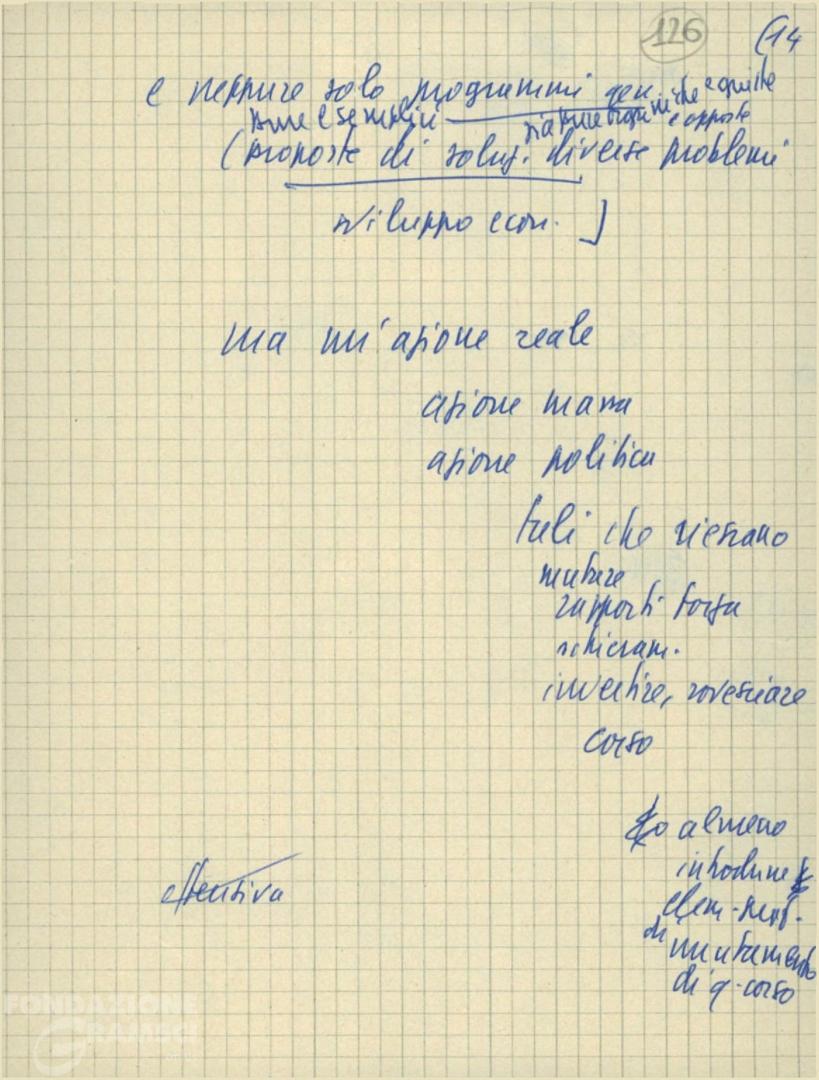 126 (14
e neppure solo programmi gen.
pure e semplici sia pure organiche e giuste
e opposte
(proposte di soluz. diverse problemi
sviluppo econ.]
ma un'azione reale
azione massa
azione politica
tali che riescano
mutare
rapporti forza
schieram.
invertire, rovesciare
corso
o almeno
introdurre
elem.
di mutamento
di q. corso
offensiva
FONDAZIONE
GRAMSCI